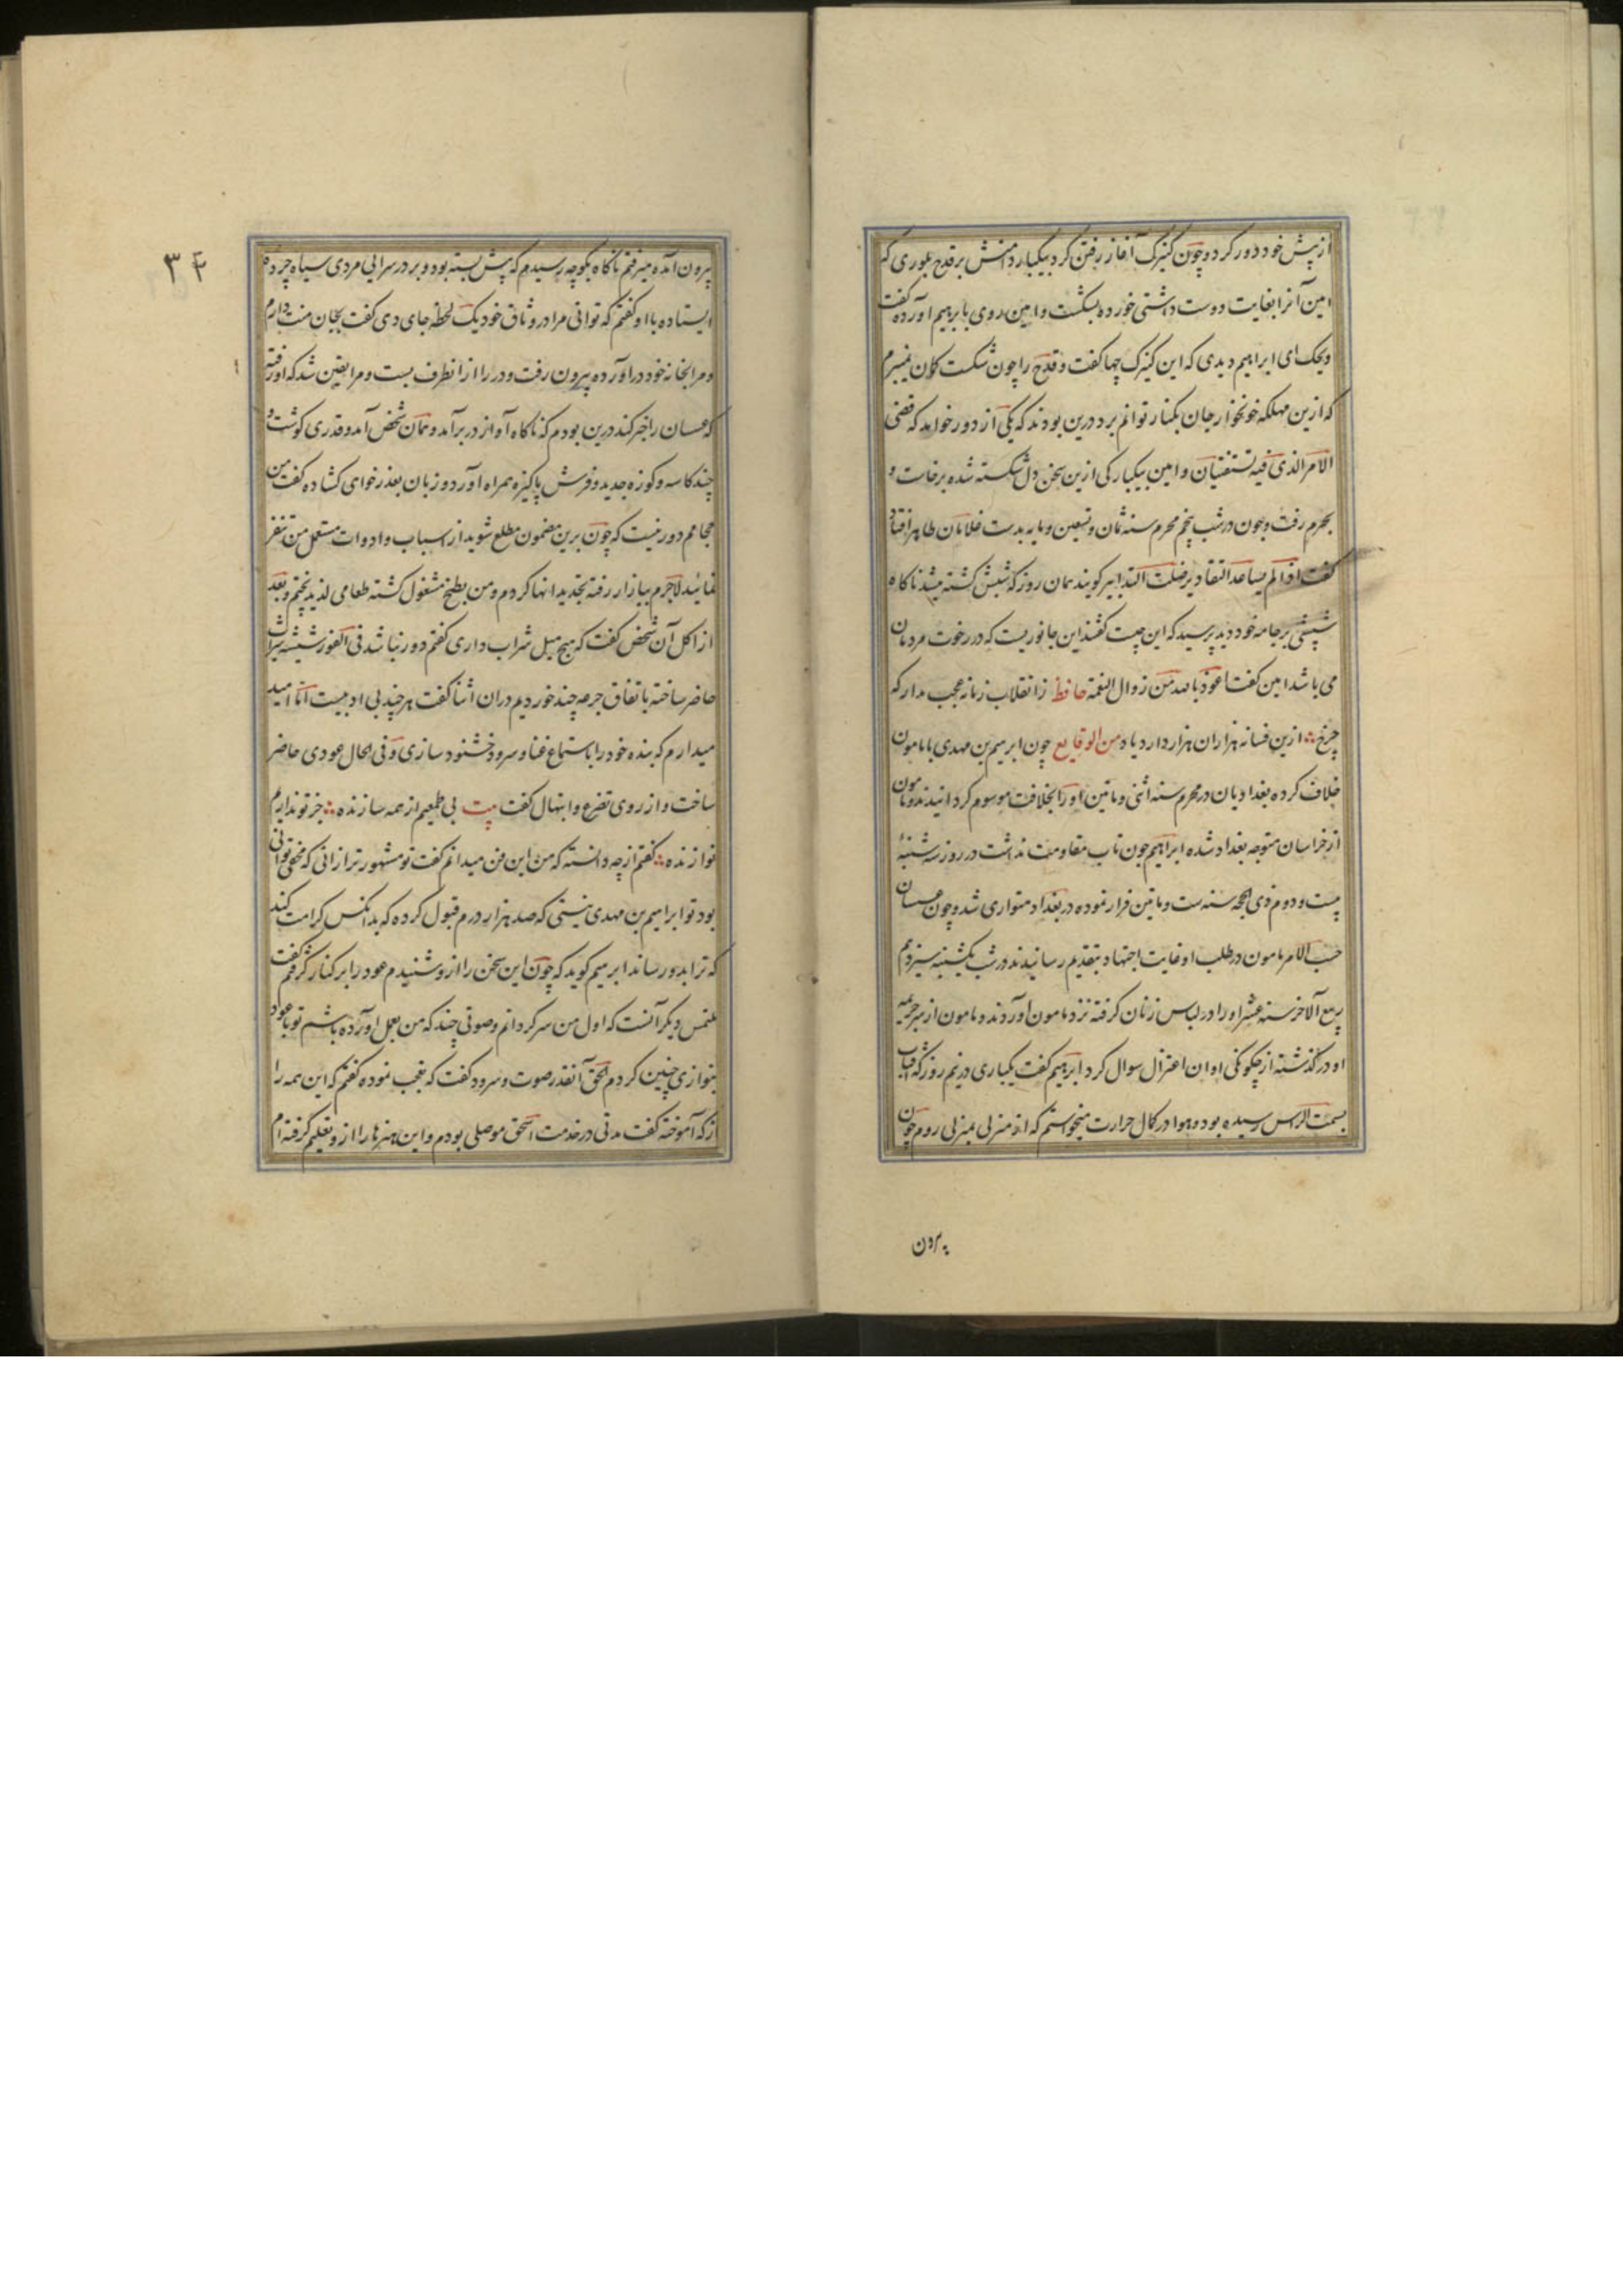 از پیش خود دور کرد و چون کنیزک آغاز رفتن کرد بیکبار دامنش بر قدح بلوری که
امین آنرا بغایت دوست داشتی خورده بشکست و امین روی بابرهیم آورده گفت
ویحک ای ابراهیم دیدی که این کنیزک چها گفت و قدح را چون شکست کمان نمیبرم
که ازین مهلکه خونخوار جان بکنار توانم برد درین بودند که یکی از دور خواند که قضی
الامر الذی فیه تستفتیان و امین بیکبارکی ازین سخن دل شکسته شده برخاست و
بحرم رفت و چون در شب پنجم محرم سنه ثمان و تسعین و مایه بدست غلامان طاهر افتاد
گفت اذا لم یساعد التقادیر ضلت التدابیر کویند همان روز که شبش کشته میشد ناکاه
شپشی بر جامه خود دید پرسید که این چیست گفتند این جانوریست که در رخوت مردمان
می باشد امین گفت اعوذ بالله من زوال النعمة حافظ ز انقلاب زمانه عجب مدار که
چرخ ∴ ازین فسانه هزاران هزار دارد یاد من الوقایع چون ابرهیم بن مهدی با مامون
خلاف کرده بغدادیان در محرم سنه اثنی و مأتین او را بخلافت موسوم کردانیدند و مامون
از خراسان متوجه بغداد شده ابراهیم چون تاب مقاومت نداشت در روز سه شنبه
بیست و دوم ذی الحجه سنه ست و مأتین فرار نموده در بغداد متواری شد و چون عسسان
حسب الامر مامون در طلب او غایت اجتهاد بتقدیم رسانیدند در شب یکشنبه سیزدهم
ربیع الآخر سنه عشر او را در لباس زنان کرفته نزد مامون آوردند و مامون از سر جریمه
او در گذشته از چکونکی اوان اعتزال سوال کرد ابرهیم گفت یکباری در نیم روز که آفتاب
بسمت الرأس رسیده بود و هوا در کمال حرارت میخواستم که از منزلی بمنزلی روم چون
بیرون
۳۴
بیرون آمده میرفتم ناکاه بکوچه رسیدم که پیش بسته بود و بر در سرایی مردی سیاه چرده
ایستاده با او گفتم که توانی مرا در وثاق خود یک لحظه جای دهی گفت بجان منت دارم
و مرا بخانه خود در آورده بیرون رفت و در را از انطرف بست و مرا یقین شد که او رفته
که عسسان را خبر کند درین بودم که ناکاه آواز در برآمد و همان شخص آمد و قدری کوشت و
چند کاسه و کوزه جدید و فرش پاکیزه همراه آورد و زبان بعذرخواهی کشاده گفت من
حجامم دور نیست که چون برین مضمون مطلع شوید از اسباب و ادوات مستعمل من تنفر
نمائید لاجرم ببازار رفته تجدید انها کردم و من بطبخ مشغول کشته طعامی لذیذ پختم و بعد
از اکل آن شخص گفت که هیچ میل شراب داری گفتم دور نباشد فی الفور شیشه شراب
حاضر ساخته باتفاق جرعه چند خوردیم در ان اثنا گفت هر چند بی ادبیست اما امید
میدارم که بنده خود را باستماع غنا و سرود خشنود سازی و فی الحال عودی حاضر
ساخت و از روی تضرع و ابتهال گفت بیت بی طمعیم از همه سازنده ∴ جز تو نداریم
نوازنده ∴ گفتم از چه دانسته که من این فن میدانم گفت تو مشهورتر ازانی که مخفی توانی
بود تو ابراهیم بن مهدی نیستی که صد هزار درم قبول کرده که بدانکس کرامت کند
که ترا بدو رساند ابرهیم کوید که چون این سخن را ازو شنیدم عود را بر کنار گرفتم گفت
ملتمس دیکر آنست که اول من سر کردانم و صوتی چند که من بعمل آورده باشم تو با عود
بنوازی چنین کردم الحق آنقدر صوت و سرود گفت که تعجب نموده گفتم که این همه را
از که آموخته گفت مدتی در خدمت اسحق موصلی بودم و این هنرها را ازو تعلیم گرفته ام